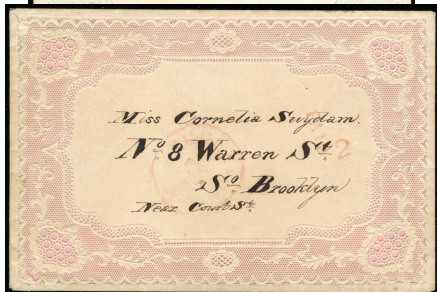 Miss Cornelia Suydam.
No 8 Warren St
So Brooklyn
Near Court St